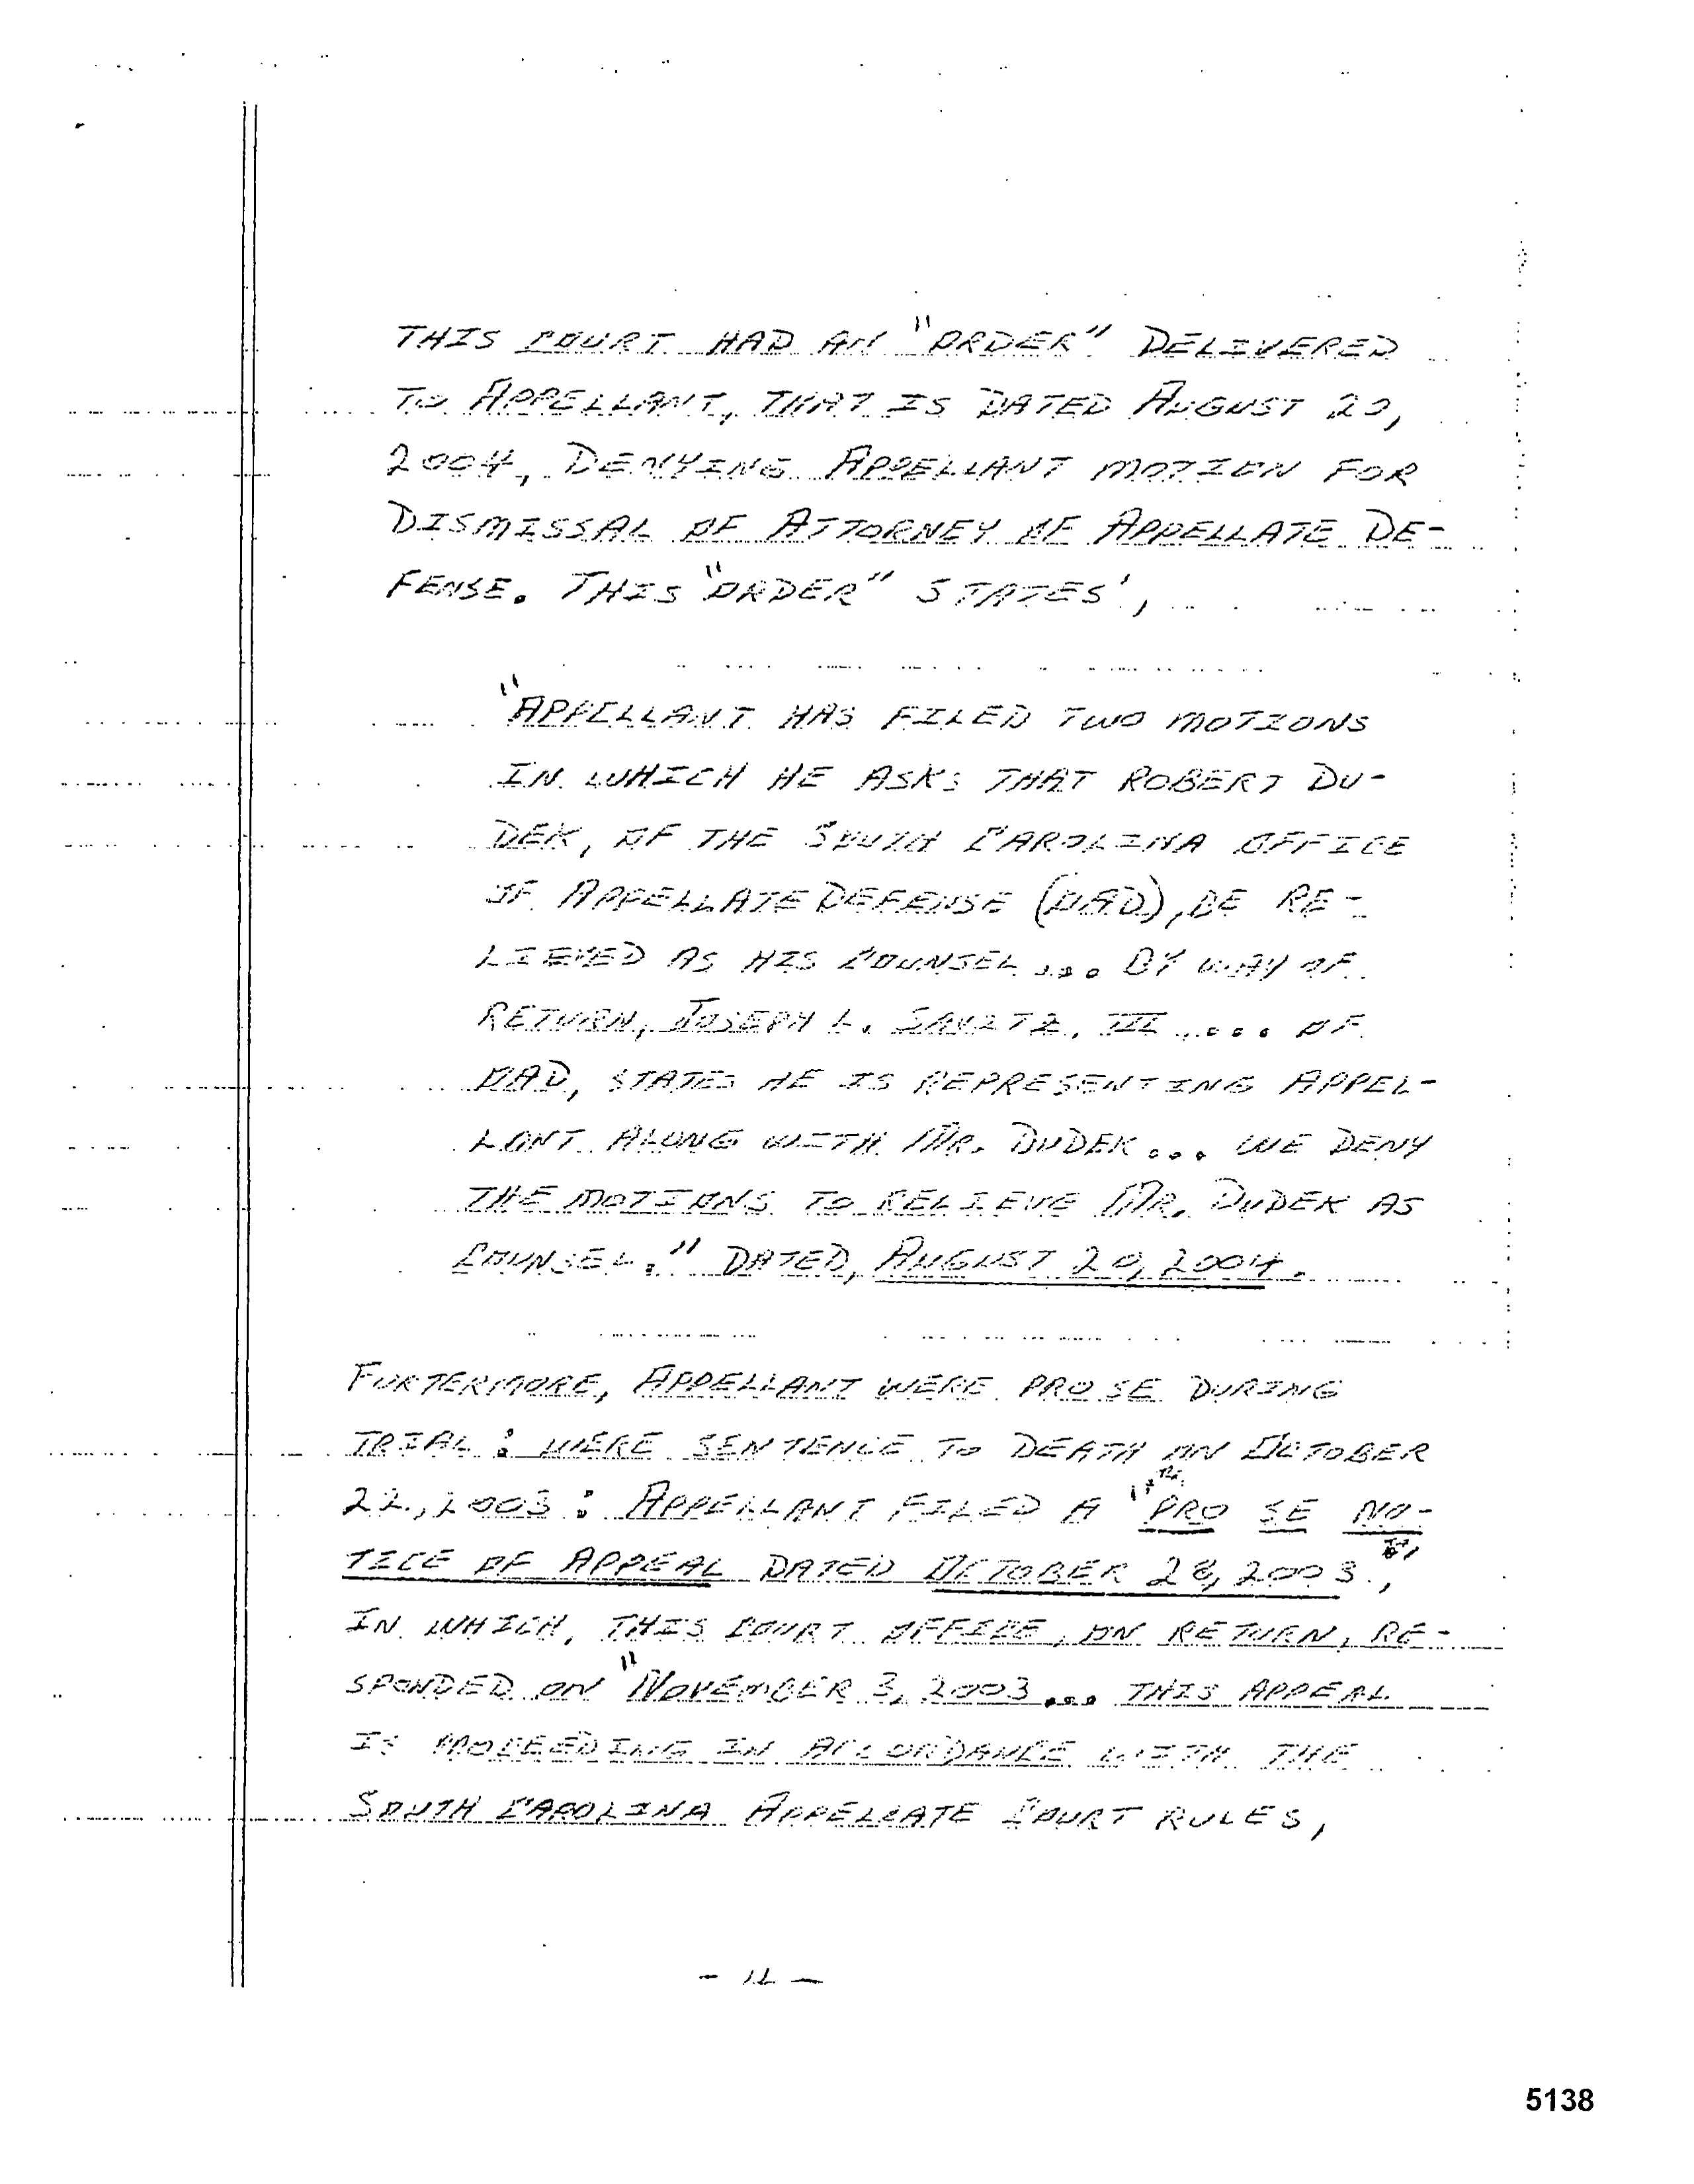 THIS COURT HAD AN "ORDER" DELIVERED
TO APPELLANT, THAT IS DATED AUGUST 20,
2004, DENYING APPELLANT MOTION FOR
DISMISSAL OF ATTORNEY OF APPELLATE DE-
FENSE. THIS "ORDER" STATES',
"APPELLANT HAS FILED TWO MOTIONS
IN WHICH HE ASKS THAT ROBERT DU-
DEK, OF THE SOUTH CAROLINA OFFICE
OF APPELLATE DEFENSE (OAD), BE RE-
LIEVED AS HIS COUNSEL... BY WAY OF
RETURN, JOSEPH L. SAVITZ, III.... OF
OAD, STATES HE IS REPRESENTING APPEL-
LANT ALONG WITH MR. DUDEK... WE DENY
THE MOTIONS TO RELIEVE MR. DUDEK AS
COUNSEL." DATED, AUGUST 20, 2004.
FURTERMORE, APPELLANT WERE PRO SE DURING
TRIAL: WERE SENTENCE TO DEATH ON OCTOBER
22, 2003: APPELLANT FILED A "PRO SE NO-
TICE OF APPEAL DATED OCTOBER 28, 2003.,
IN WHICH, THIS COURT OFFICE, ON RETURN, RE-
SPONDED ON "NOVEMBER 3, 2003... THIS APPEAL
IS PROCEEDING IN ACCORDANCE WITH THE
SOUTH CAROLINA APPELLATE COURT RULES,
5138